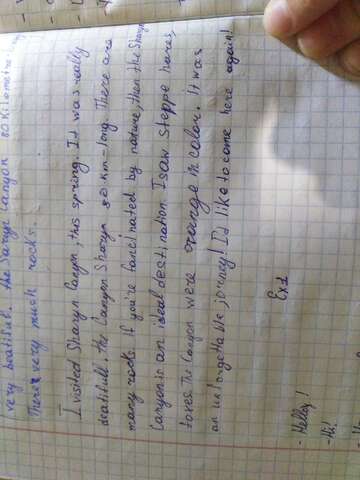 very beatiful. the Saryn Canyon 80 kilometres
There very much rocks.
I visited Sharyn Canyon, this spring. It was really
beatifull. the Canyon Sharyn 80 km-long. There are
many rocks. If you're fancinated by nature, then the Sharyn
Canyon is an ideal destination. I saw Steppe hares,
foxes. The Canyon were orange in color. It was
an unforgettable journey! I'd like to come here again!
Ex1
- Helloy!
- Hi!